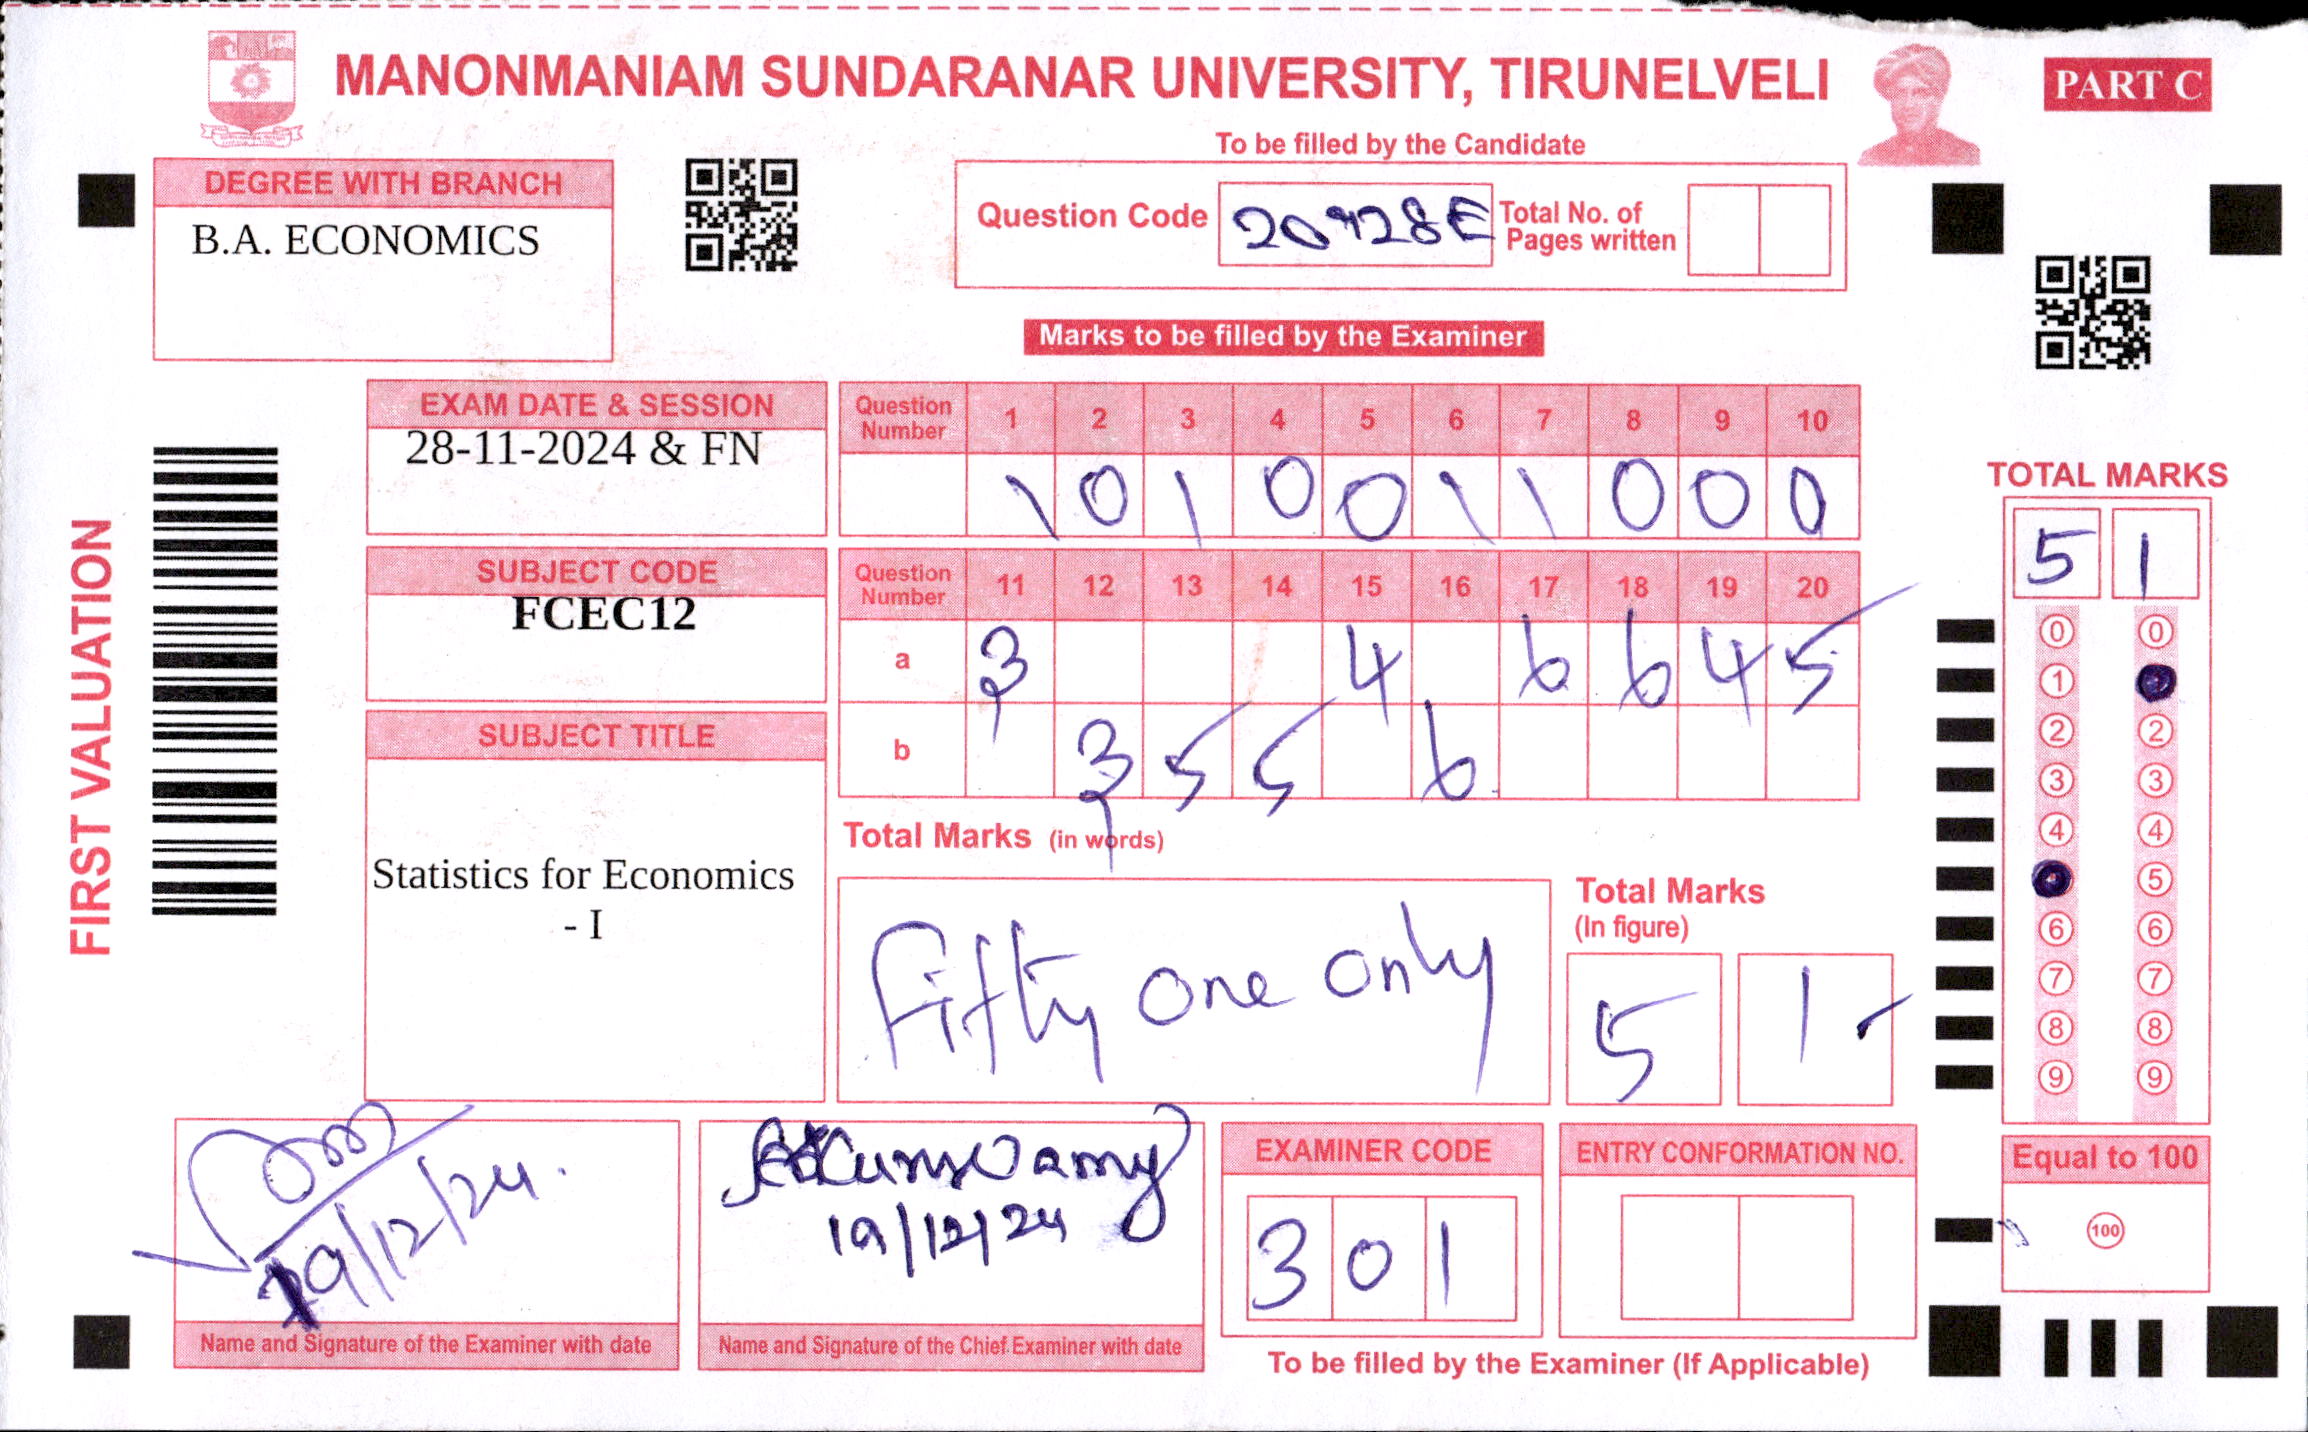 MANONMANIAM SUNDARANAR UNIVERSITY, TIRUNELVELI
PART C
To be filled by the Candidate
DEGREE WITH BRANCH
B.A. ECONOMICS
Question Code 20728E Total No. of Pages written
Marks to be filled by the Examiner
EXAM DATE & SESSION
28-11-2024 & FN
Question Number 1 2 3 4 5 6 7 8 9 10
1 0 1 0 0 1 1 0 0 0
SUBJECT CODE
FCEC12
Question Number 11 12 13 14 15 16 17 18 19 20
a 3 4 6 6 4 5
b 3 5 5 6
SUBJECT TITLE
Statistics for Economics
- I
Total Marks (in words)
Fifty one only
Total Marks
(In figure)
5 1
FIRST VALUATION
TOTAL MARKS
5 1
0 0
1
2 2
3 3
4 4
5
6 6
7 7
8 8
9 9
Equal to 100
100
19/12/24.
Name and Signature of the Examiner with date
19/12/24
Name and Signature of the Chief Examiner with date
EXAMINER CODE
3 0 1
ENTRY CONFORMATION NO.
To be filled by the Examiner (If Applicable)